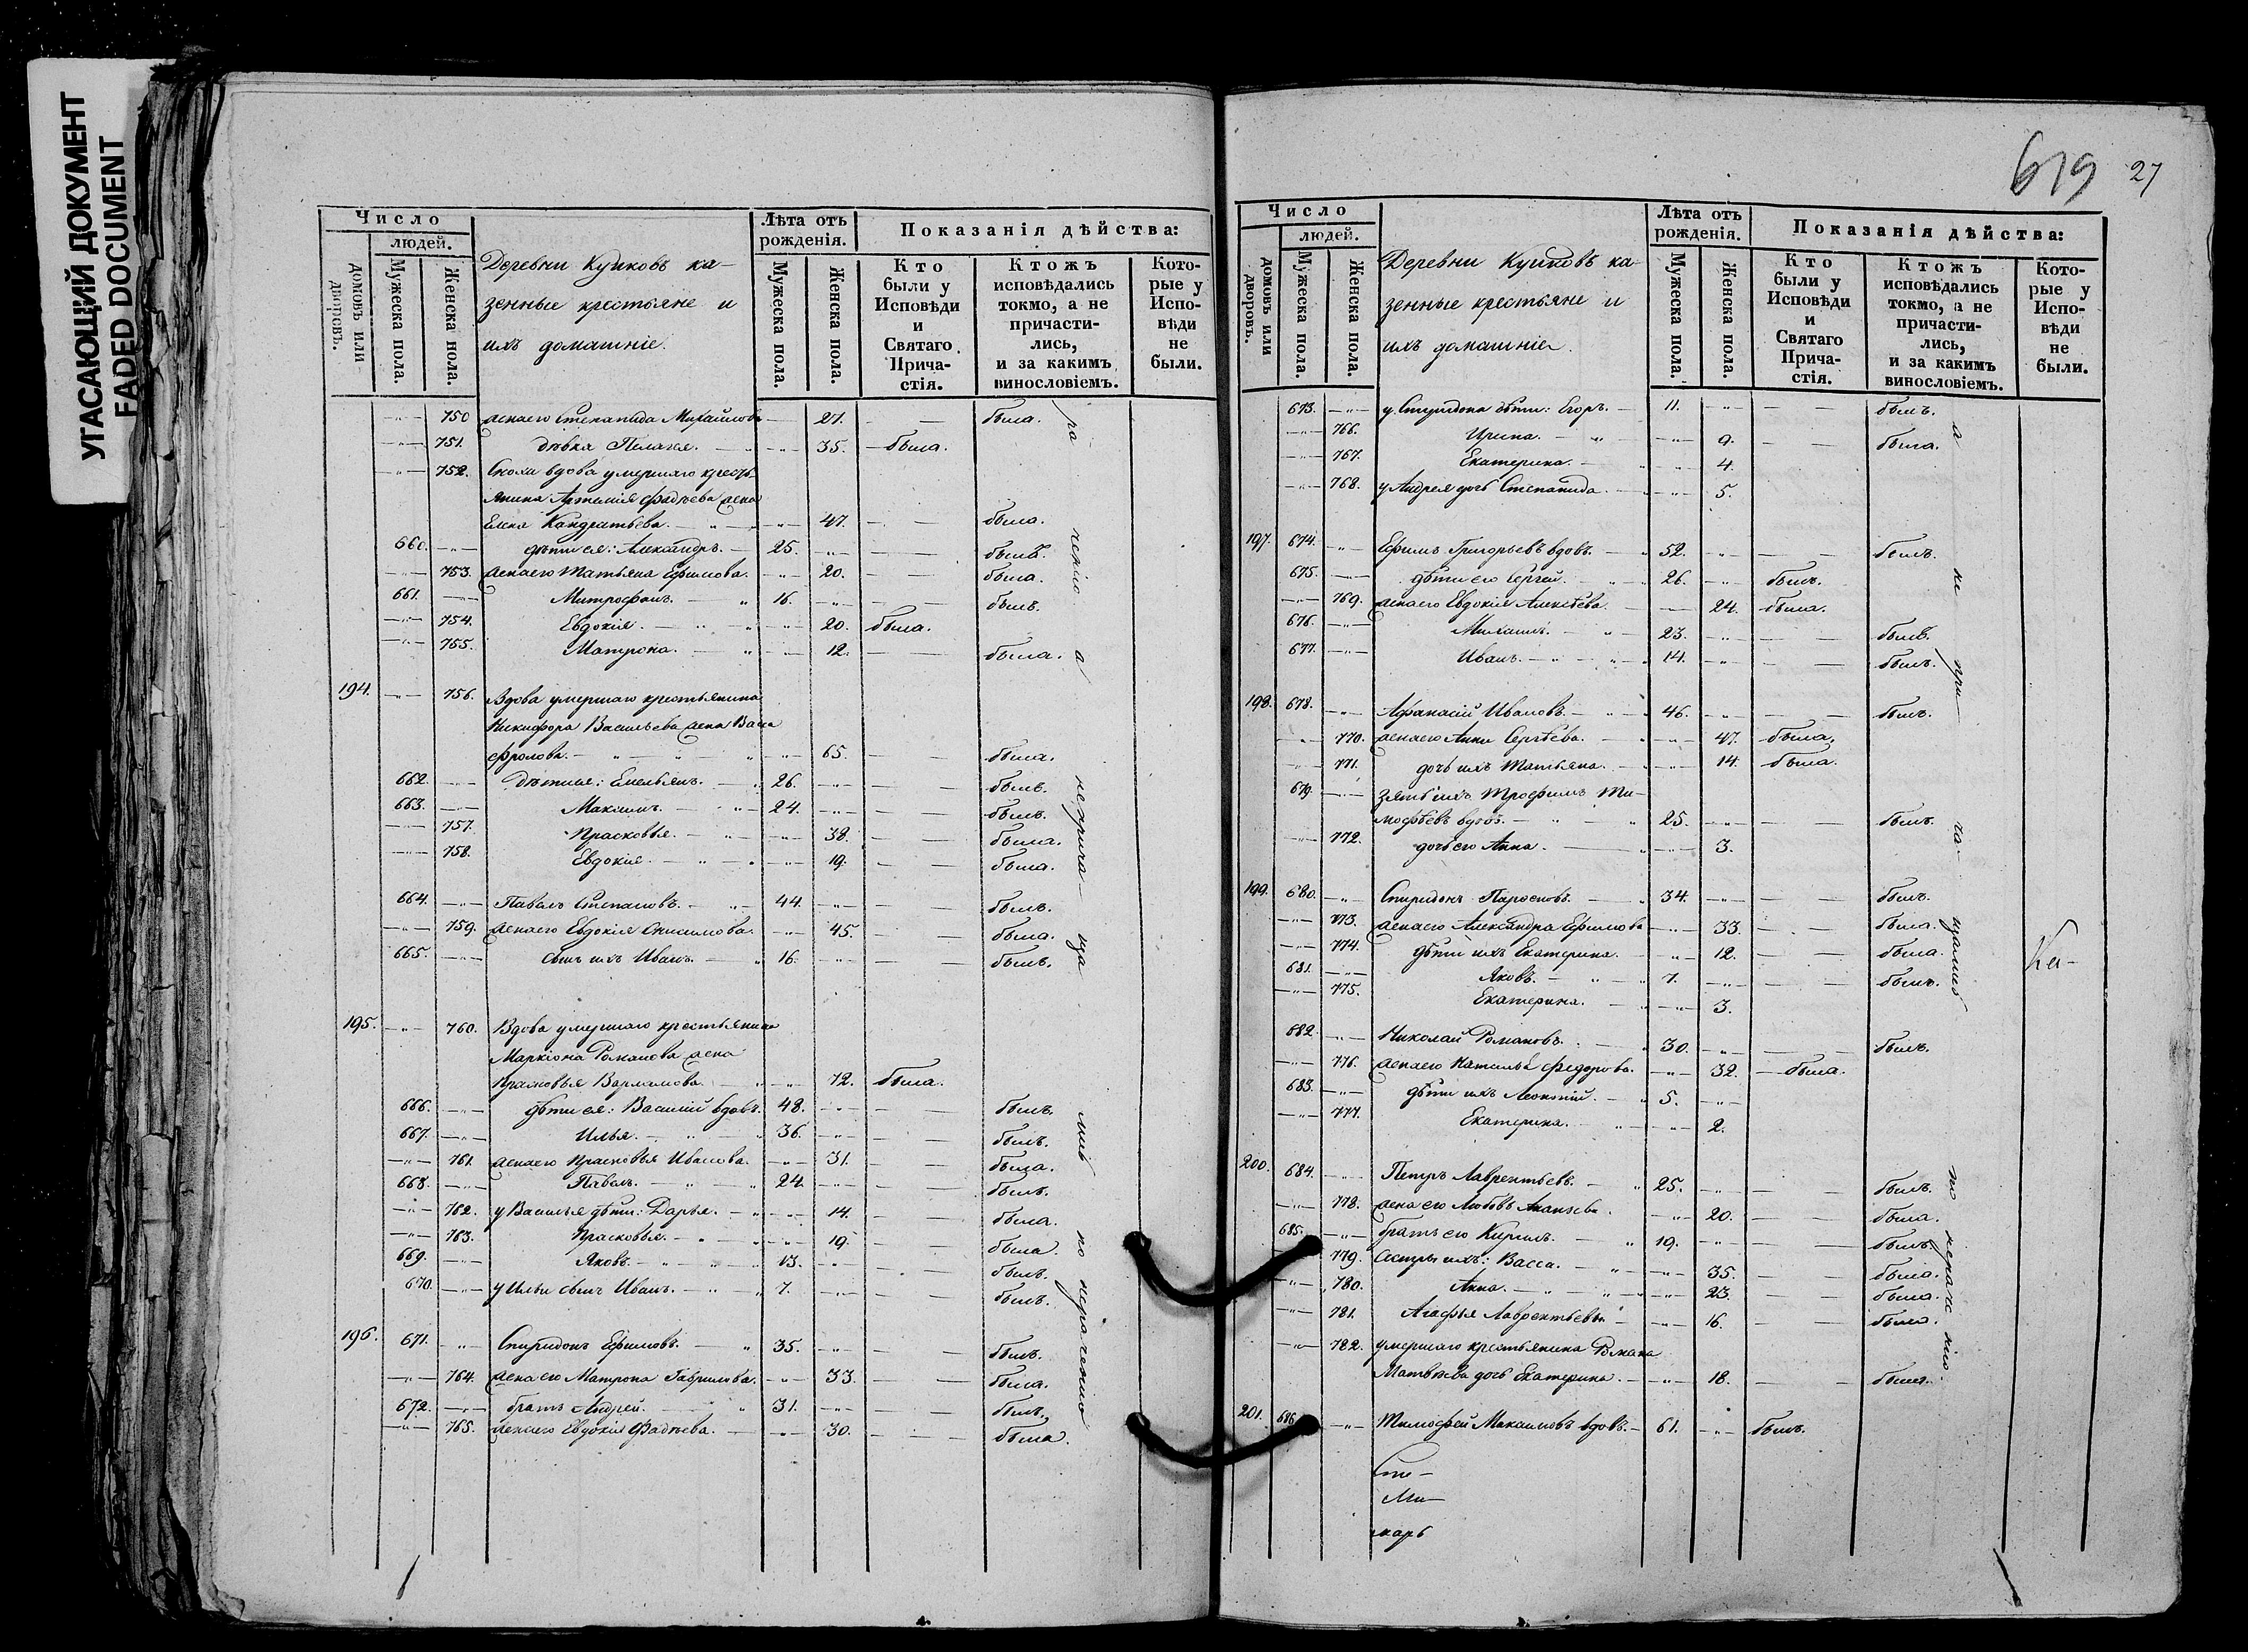 УГАСАЮЩИЙ ДОКУМЕНТ
FADED DOCUMENT
Число
людей.
домовъ или дворовъ.
Мужеска пола.
Женска пола.
Деревни Кушковъ ка-
зенные крестьяне и
ихъ домашніе.
Лѣта отъ
рожденія.
Мужеска пола.
Женска пола.
Показанія дѣйства:
Кто
были у
Исповѣди
и
Святаго
Прича-
стія.
Ктожъ
исповѣдались
токмо, а не
причасти-
лись,
и за какимъ
винословіемъ.
Кото-
рые у
Испо-
вѣди
не
были.
750 жена его Степанида Михайлова 27. была.
751. дѣвка Пелагея. 35. была.
752. Сноха вдова умершаго кресть-
янина Артемія Фадѣева жена
Елена Кондратьева. 47. была.
660. дѣти ея: Александръ. 25. былъ.
753. жена его Татьяна Ефимова. 20. была.
661. Митрофанъ. 16. былъ.
754. Евдокія. 20. была.
755. Матрона. 12. была.
194. 756. Вдова умершаго крестьянина
Никифора Васильева жена Васса
Фролова. 65. была.
662. Дѣти ея: Емельянъ. 26. былъ.
663. Максимъ. 24. былъ.
757. Прасковья. 38. была.
758. Евдокія. 19. была.
664. Павелъ Степановъ. 44. былъ.
759. жена его Евдокія Анисимова. 45. была.
665. сынъ ихъ Иванъ. 16. былъ.
195. 760. Вдова умершаго крестьянина
Маркіона Романова жена
Прасковья Варламова. 72. была.
666. дѣти ея: Василій вдовъ. 48. былъ.
667. Илья. 36. былъ.
761. жена его Прасковья Иванова. 31. была.
668. Павелъ. 24. былъ.
762. у Василья дѣти: Дарья. 14. была.
763. Прасковья. 19. была.
669. Яковъ. 13. былъ.
670. у Ильи сынъ Иванъ. 7. былъ.
196. 671. Спиридонъ Ефимовъ. 35. былъ.
764. жена его Матрона Гаврилова. 33. была.
672. братъ Андрей. 31. былъ.
765. жена его Евдокія Фадѣева. 30. была.
619 27
Число
людей.
домовъ или дворовъ.
Мужеска пола.
Женска пола.
Деревни Кушковъ ка-
зенные крестьяне и
ихъ домашніе.
Лѣта отъ
рожденія.
Мужеска пола.
Женска пола.
Показанія дѣйства:
Кто
были у
Исповѣди
и
Святаго
Прича-
стія.
Ктожъ
исповѣдались
токмо, а не
причасти-
лись,
и за какимъ
винословіемъ.
Кото-
рые у
Испо-
вѣди
не
были.
673. у Спиридона дѣти: Егоръ. 11. былъ.
766. Ирина. 9. была.
767. Екатерина. 4.
768. у Андрея дочь Степанида. 5.
197. 674. Ефимъ Григорьевъ вдовъ. 52. былъ.
675. дѣти его Сергей. 26. былъ.
769. жена его Евдокія Алексѣева. 24. была.
676. Михаилъ. 23. былъ.
677. Иванъ. 14. былъ.
198. 678. Афанасій Ивановъ. 46. былъ.
770. жена его Анна Сергѣева. 47. была.
771. дочь ихъ Татьяна. 14. была.
679. зять ихъ Трофимъ Ти-
мофѣевъ вдовъ. 25. былъ.
772. дочь его Анна. 3.
199. 680. Спиридонъ 34. былъ.
773. жена его Александра Ефимова 33. была.
774. дѣти ихъ Екатерина. 12. была.
681. Яковъ. 7. былъ.
775. Екатерина. 3.
682. Николай Романовъ. 30. былъ.
776. жена его Наталья Федорова. 32. была.
683. дѣти ихъ Леонтій. 5.
777. Екатерина. 2.
200. 684. Петръ Лаврентьевъ. 25. былъ.
778. жена его Любовь Ананьева. 20. была.
685. братъ его Кирилъ. 19. былъ.
779. Сестры ихъ: Васса. 35. была.
780. Анна. 23. была.
781. Агафья Лаврентьевы 16. была.
782. умершаго крестьянина Романа
Матвѣева дочь Екатерина. 18. была.
201. 686 Тимофей Максимовъ вдовъ. 61. былъ.
Ка-
Ми-
карь